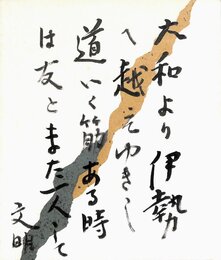 大和より伊勢
へ越えゆきし
道いく筋ある時
は友とまた一人して
文明